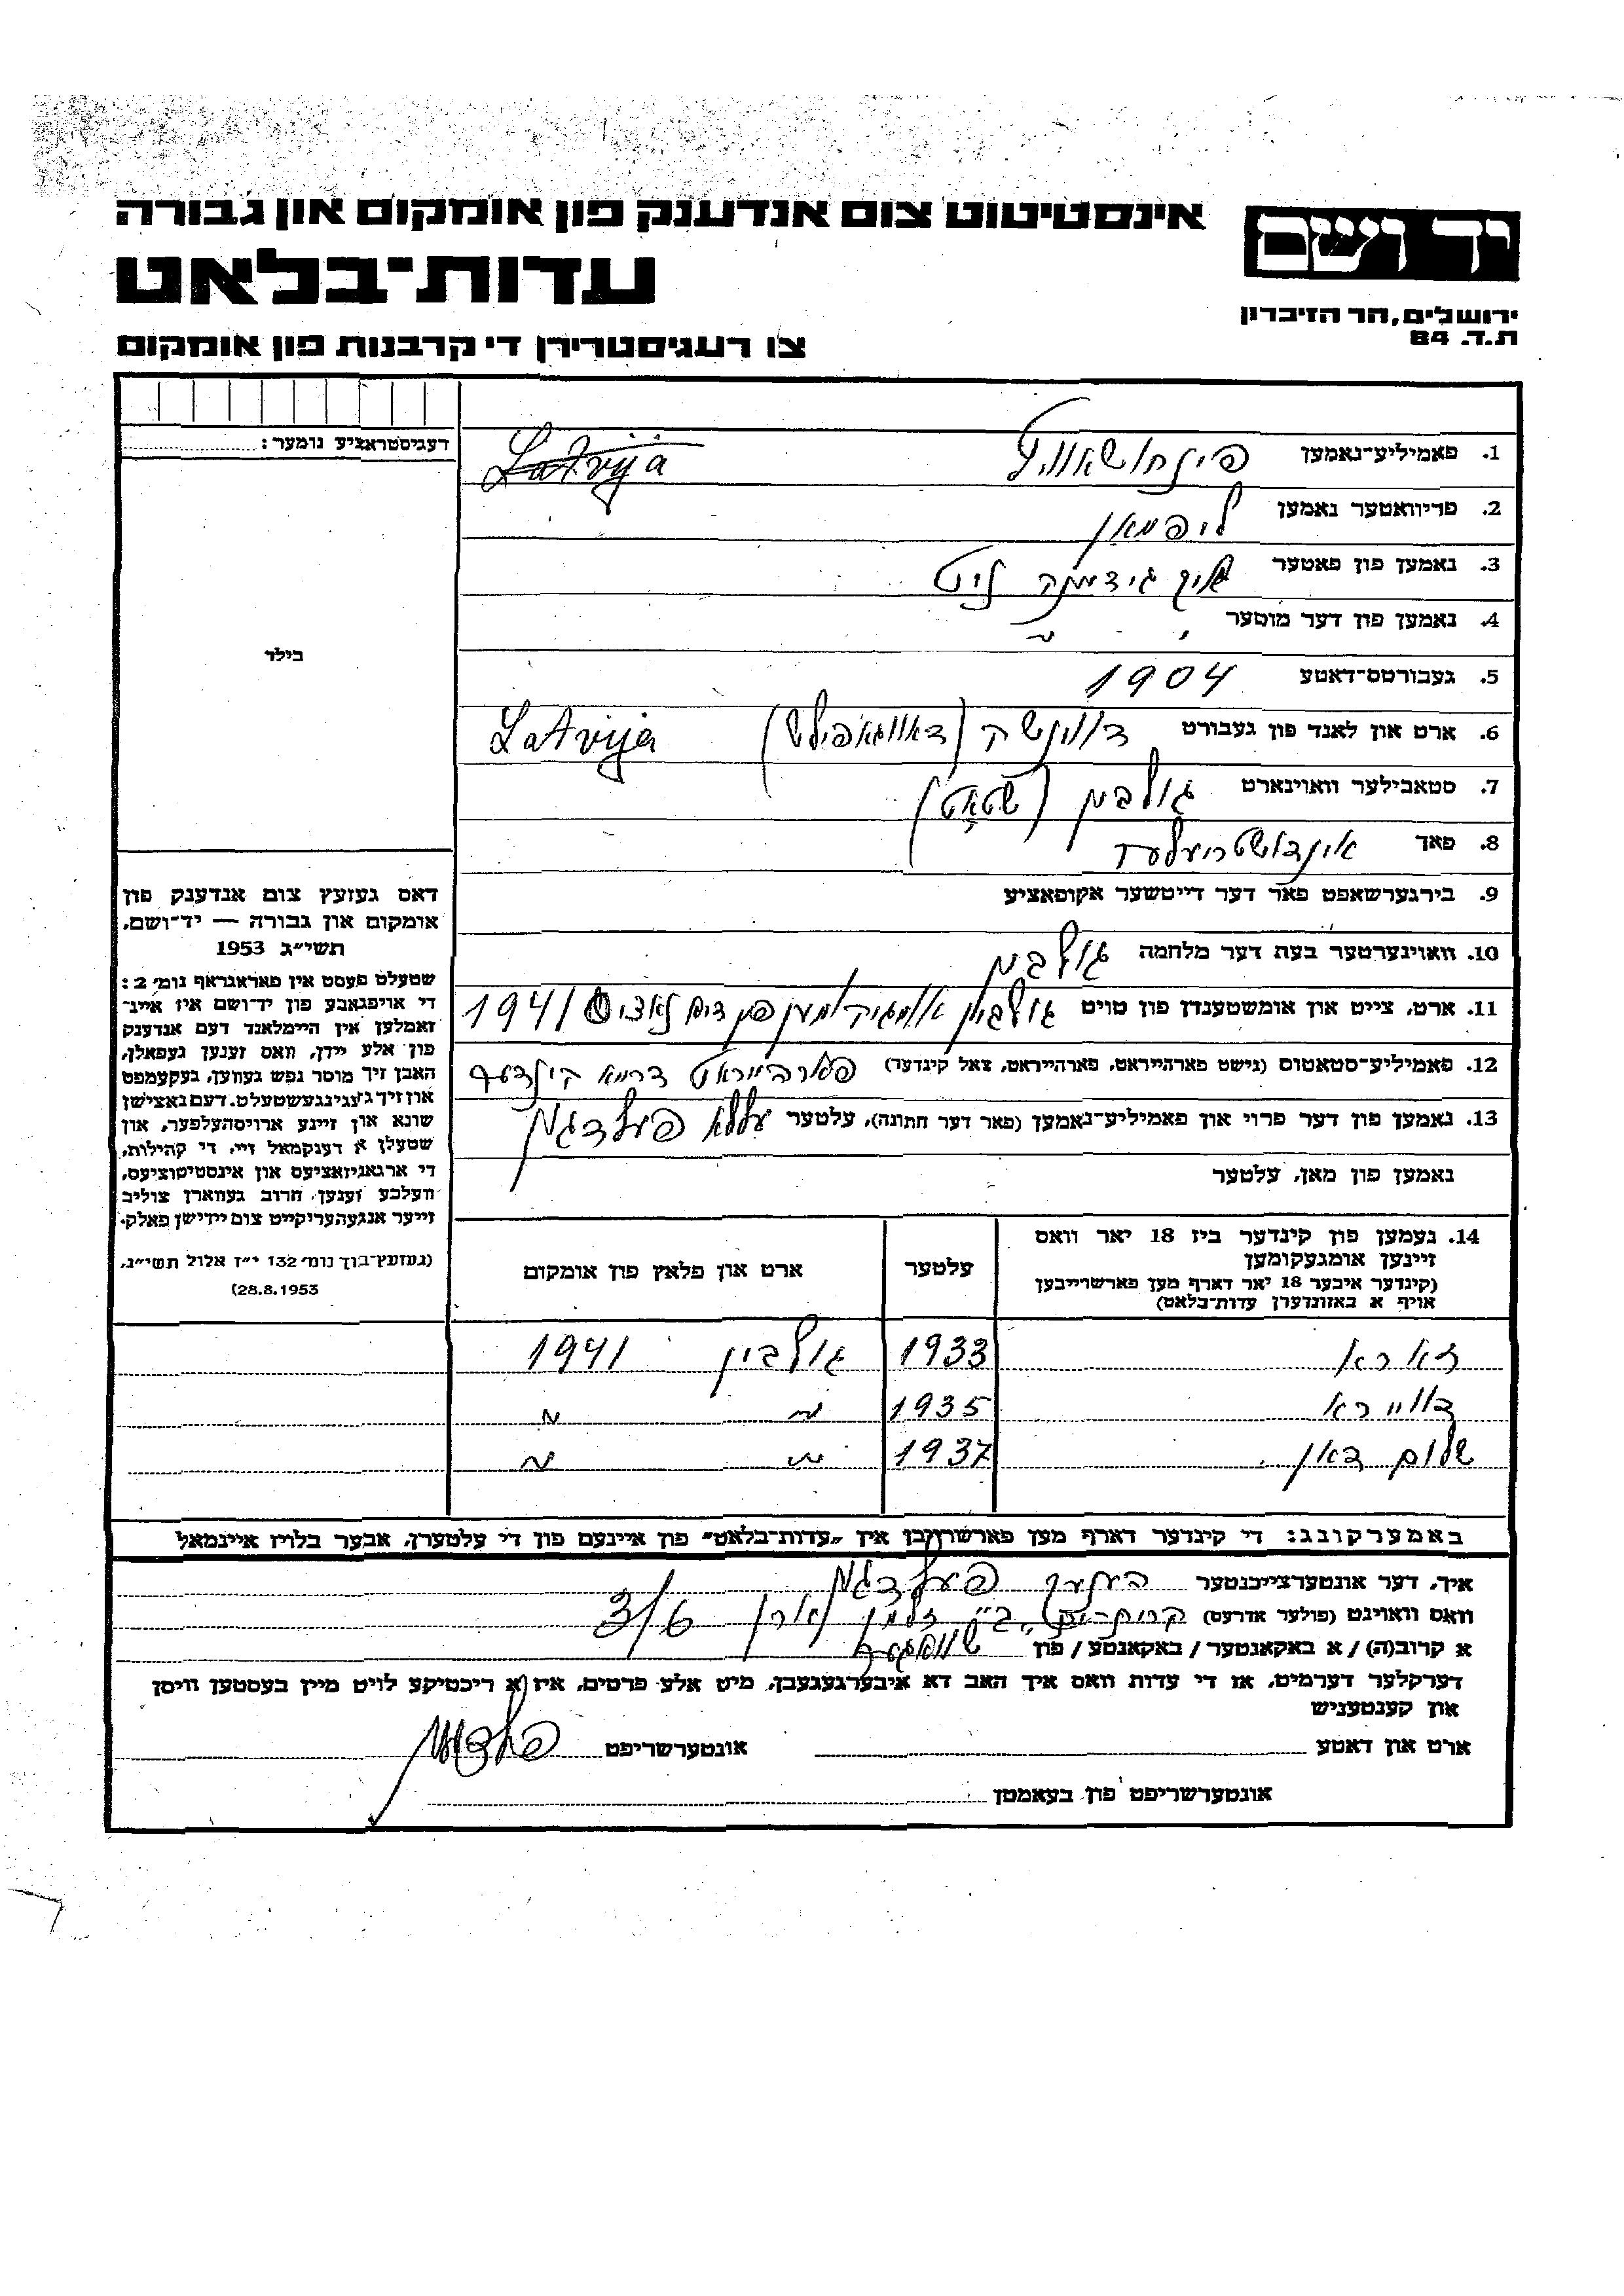 אינסטיטוט צום אנדענק פון אומקום און גבורה
יד ושם
עדות־בלאט
ירושלים, הר הזיכרון
ת.ד. 84
צו רעגיסטרירן די קרבנות פון אומקום
רעגיסטראציע נומער:
1. פאמיליע־נאמען
Latvija
2. פריוואטער נאמען ליפמאן
3. נאמען פון פאטער
4. נאמען פון דער מוטער
בילד
5. געבורטס־דאטע 1904
6. ארט און לאנד פון געבורט Latvija
7. סטאבילער וואוינארט (שטאט)
8. פאך
9. בירגערשאפט פאר דער דייטשער אקופאציע
10. וואוינערטער בעת דער מלחמה
11. ארט, צייט און אומשטענדן פון טויט גולבין 1941
12. פאמיליע־סטאטוס (נישט פארהייראט, פארהייראט, צאל קינדער) פארהייראט דרייא קינדער
13. נאמען פון דער פרוי און פאמיליע־נאמען (פאר דער חתונה), עלטער
נאמען פון מאן, עלטער
דאס געזעץ צום אנדענק פון
אומקום און גבורה — יד־ושם,
תשי״ג 1953
שטעלט פעסט אין פאראגראף נומ׳ 2:
די אויפגאבע פון יד־ושם איז איינ־
זאמלען אין היימלאנד דעם אנדענק
פון אלע יידן, וואס זענען געפאלן,
האבן זיך מוסר נפש געווען, געקעמפט
און זיך געגינגעשטעלט. דעם נאצישן
שונא און זיינע ארויסהעלפער, און
שטעלן א דענקמאל זיי, די קהילות,
די ארגאניזאציעס און אינסטיטוציעס,
וועלכע זענען חרוב געווארן צוליב
זייער אנגעהעריקייט צום יידישן פאלק.
(געזעץ־בוך נומ׳ 132 י״ז אלול תשי״ג,
28.8.1953)
14. נעמען פון קינדער ביז 18 יאר וואס
זיינען אומגעקומען
(קינדער איבער 18 יאר דארף מען פארשרייבען
אויף א באזונדערן עדות־בלאט)
עלטער
ארט און פלאץ פון אומקום
זארא 1933 גולבין 1941
דווירא 1935 " "
שלום דאן 1937 " "
באמערקונג: די קינדער דארף מען פארשרייבן אין „עדות־בלאט״ פון איינעם פון די עלטערן, אבער בלויז איינמאל
איך, דער אונטערצייכנטער
וואס וואוינט (פולער אדרעס) 3/6
א קרוב(ה) / א באקאנטער / באקאנטע / פון
דערקלער דערמיט, אז די עדות וואס איך האב דא איבערגעגעבן, מיט אלע פרטים, איז א ריכטיקע לויט מיין בעסטען וויסן
און קענטעניש
ארט און דאטע אונטערשריפט
אונטערשריפט פון בעאמטן